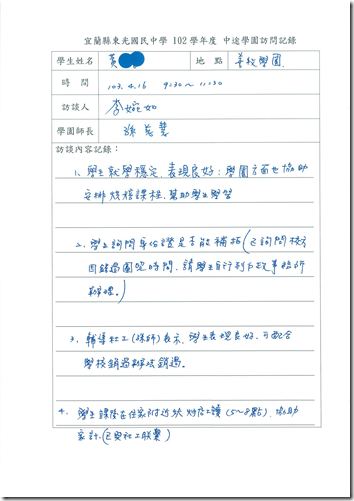 宜蘭縣東光國民中學 102 學年度 中途學園訪問記錄
學生姓名 黃 地點 善牧學園
時間 103.4.16 9:30~11:30
訪談人 李婉如
學園師長 孫 慧
訪談內容記錄：
1、學生就學穩定、表現良好；學園方面也協助
安排技藝課程，幫助學生學習
2、學生詢問身份證是否能補拍（已詢問校方
因錯過團照時間，請學生自行到戶政事務所
辦理。）
3、輔導社工（孫師）表示，學生表現良好，可配合
學校銷過辦法銷過。
4、學生課餘在住家附近 打工讀（5~8點），協助
家計。（已與社工聯繫）